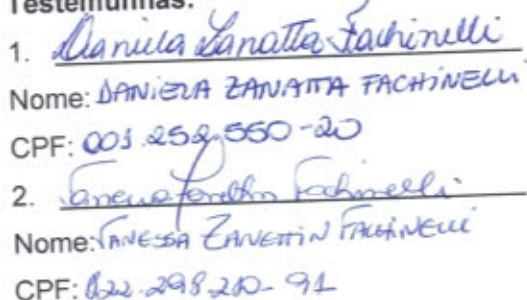 Testemunhas:
1. Daniela Zanatta Fachinelli
Nome: DANIELA ZANATTA FACHINELLI
CPF: 001.252.550-20
2. Fachinelli
Nome: VANESSA ZANETTIN FACHINELLI
CPF: 022.298.210-91